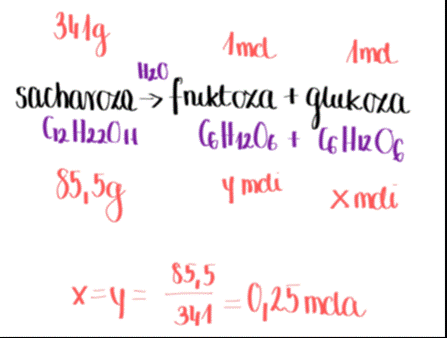 341g 1mol 1mol
H2O
sacharoza → fruktoza + glukoza
C12H22O11 C6H12O6 + C6H12O6
85,5g y moli x moli
x=y= 85,5/341 = 0,25 mola